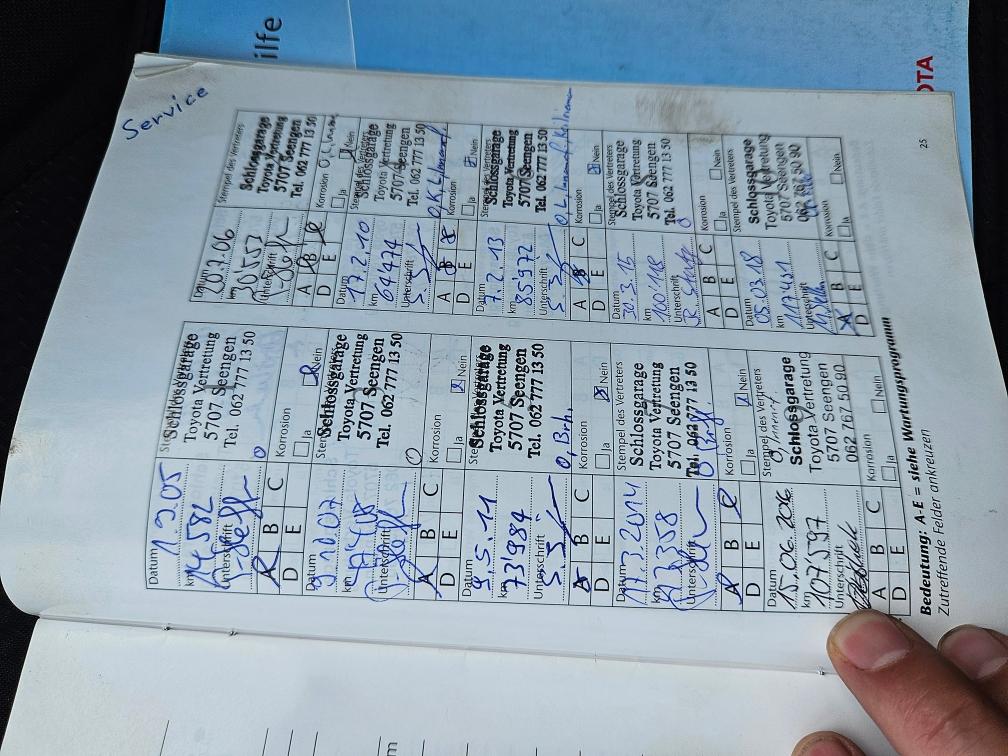 Service
Datum
1.9.05
km
14582
Unterschrift
A B C
D E
Schlossgarage
Toyota Vertretung
5707 Seengen
Tel. 062 777 13 50
Korrosion
Ja Nein
Datum
20.7.06
km
Unterschrift
A B
D E
Stempel des Vertreters
Schlossgarage
Toyota Vertretung
5707 Seengen
Tel. 062 777 13 50
Korrosion
Ja Nein
10.07
km
Unterschrift
A B C
D E
Schlossgarage
Toyota Vertretung
5707 Seengen
Tel. 062 777 13 50
Korrosion
Ja Nein
Datum
17.2.10
km
64474
Unterschrift
A B
D E
Schlossgarage
Toyota Vertretung
5707 Seengen
Tel. 062 777 13 50
Korrosion
Ja Nein
Datum
9.5.11
km
73984
Unterschrift
A B C
D E
Schlossgarage
Toyota Vertretung
5707 Seengen
Tel. 062 777 13 50
Ja Nein
Datum
7.2.13
km
85972
Unterschrift
A B C
D E
Stempel des Vertreters
Schlossgarage
Toyota Vertretung
5707 Seengen
Tel. 062 777 13 50
Korrosion
Ja Nein
Datum
17.3.2014
km
Unterschrift
A B
D E
Stempel des Vertreters
Schlossgarage
Toyota Vertretung
5707 Seengen
Tel. 062 777 13 50
Korrosion
Ja Nein
Datum
30.3.15
km
100'118
Unterschrift
A B C
D E
Stempel des Vertreters
Schlossgarage
Toyota Vertretung
5707 Seengen
Tel. 062 777 13 50
Korrosion
Ja Nein
Datum
15.06.2016
km
107597
Unterschrift
A B C
D E
Stempel des Vertreters
Schlossgarage
Toyota Vertretung
5707 Seengen
062 767 50 90
Korrosion
Ja Nein
Datum
05.03.18
km
117451
Unterschrift
A B C
D E
Stempel des Vertreters
Schlossgarage
Toyota Vertretung
5707 Seengen
062 767 50 90
Korrosion
Ja Nein
Bedeutung: A-E = siehe Wartungsprogramm
Zutreffende Felder ankreuzen
25
ilfe
OTA